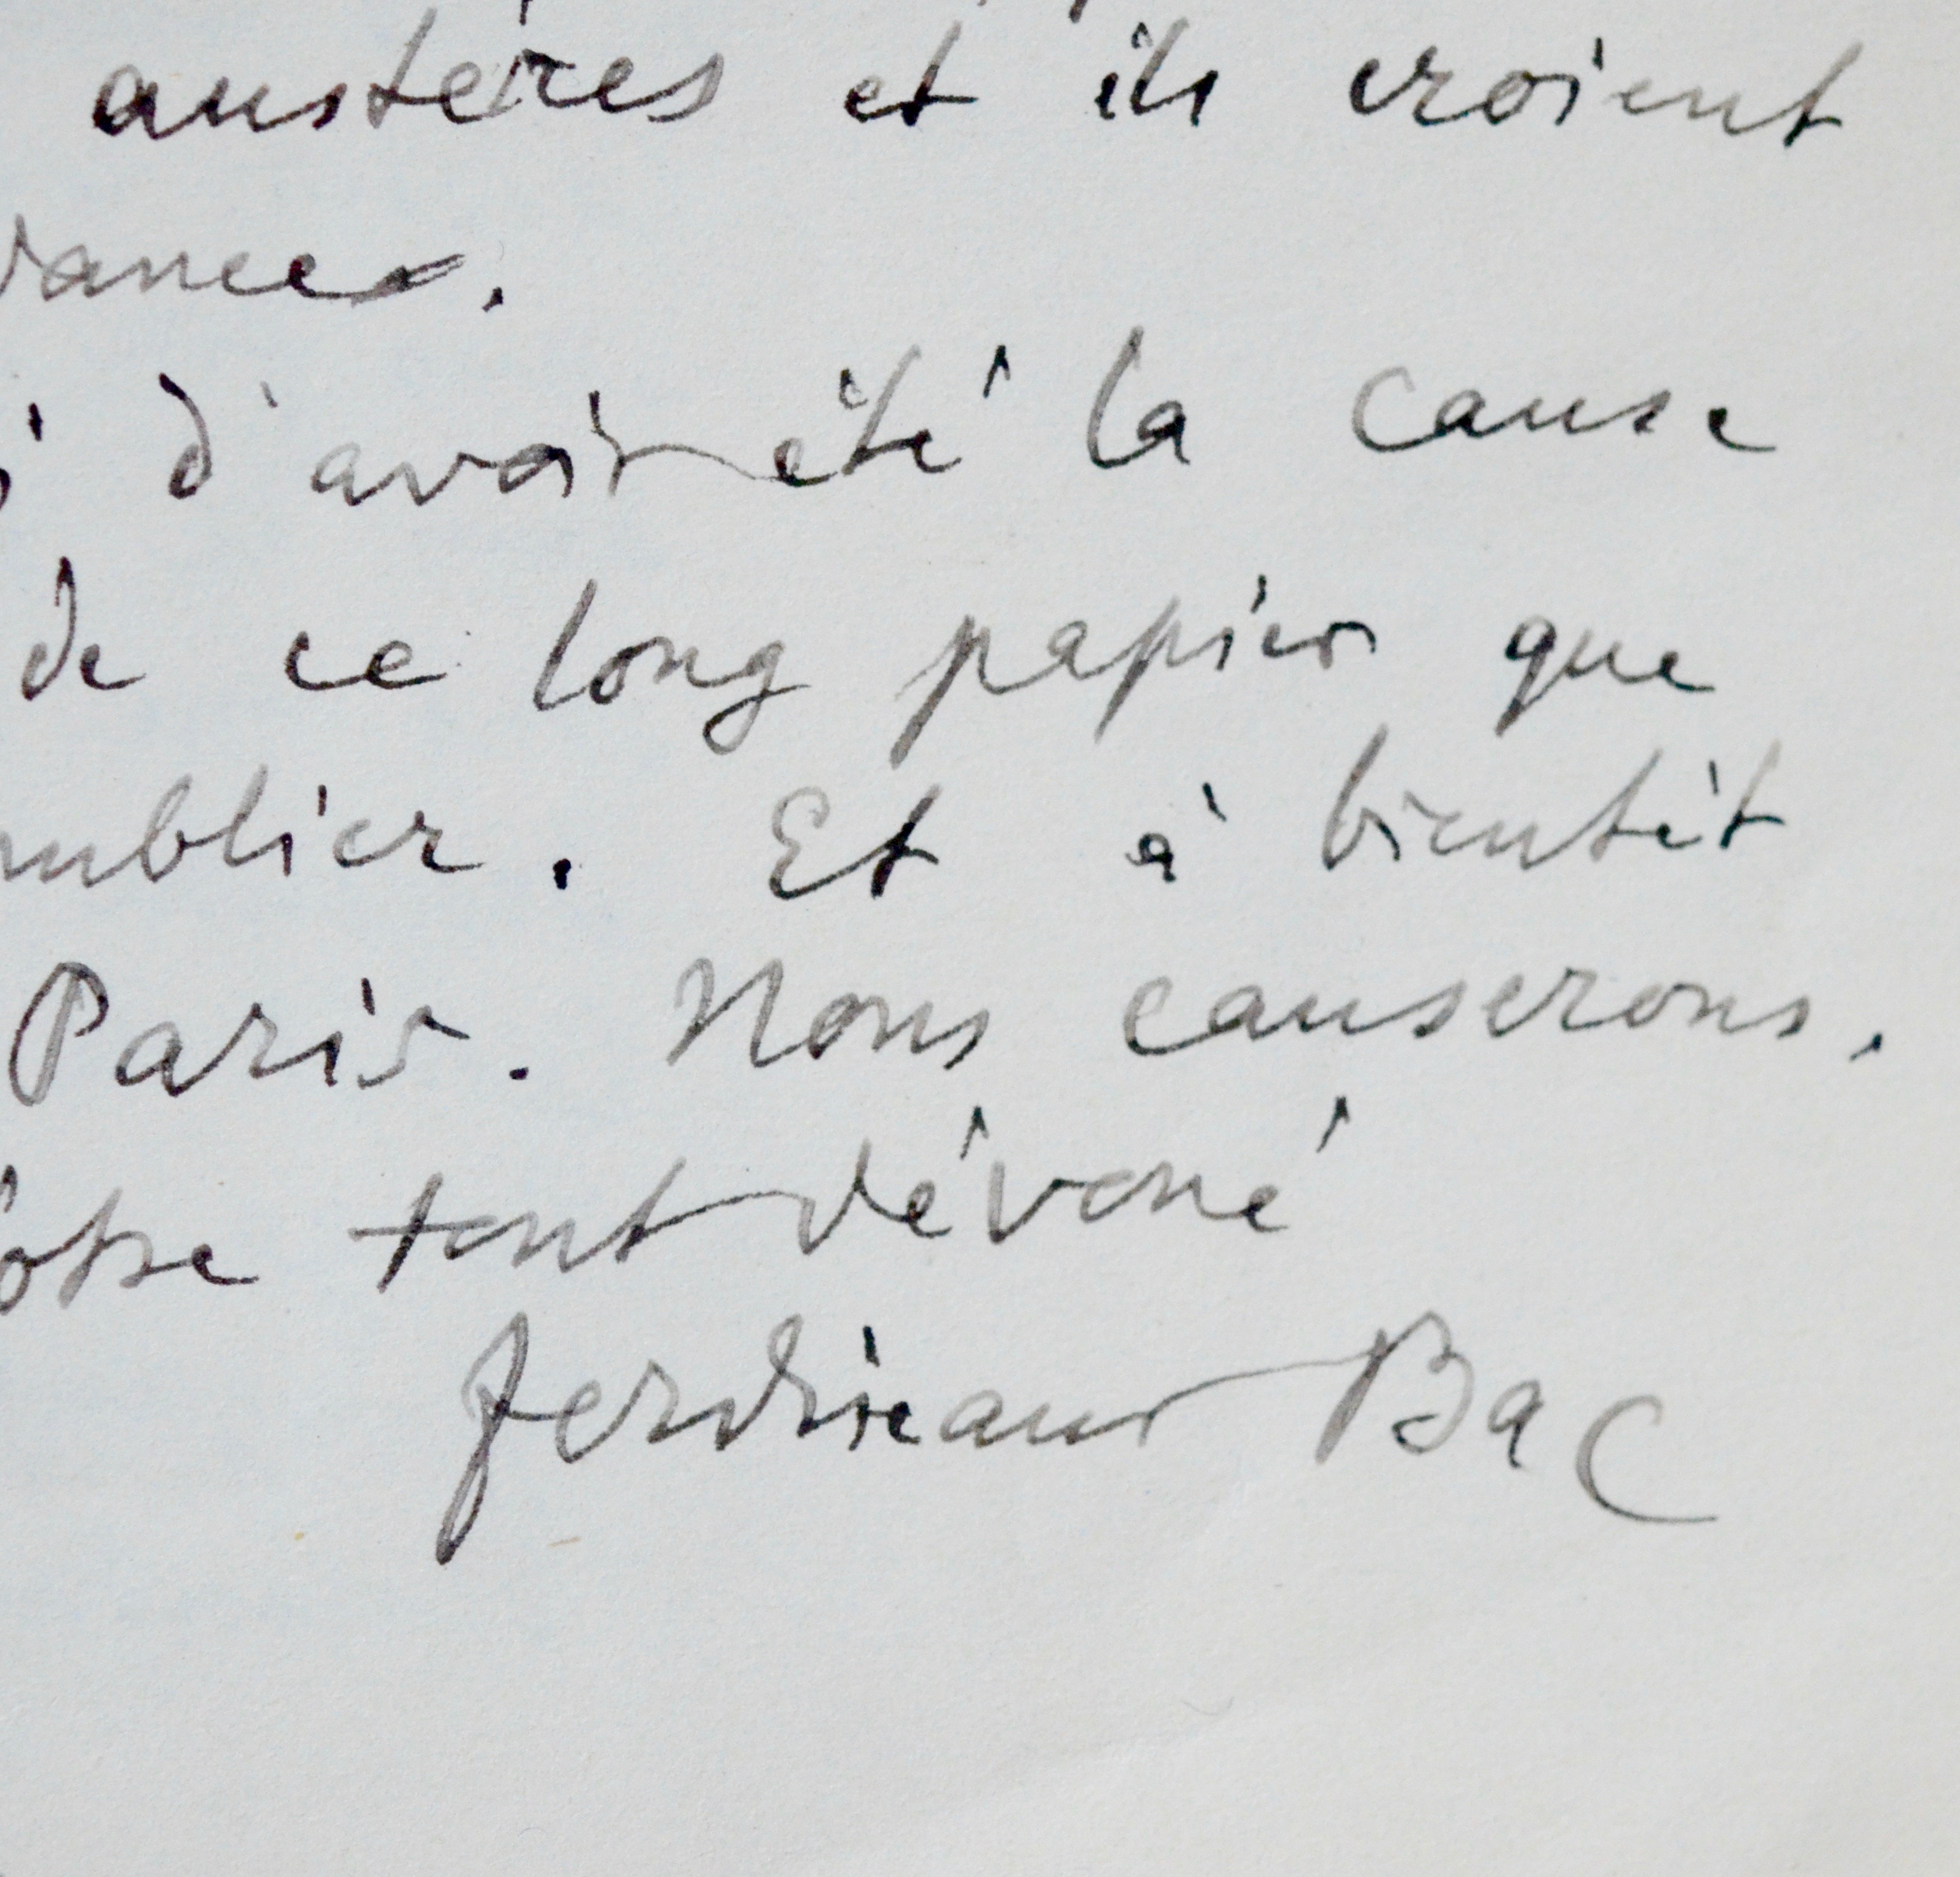 austères et ils croient
vances.
d'avoir été la cause
de ce long papier que
publier. Et à bientôt
Paris. Nous causerons.
ôtre tout dévoué
Ferdinand Bac